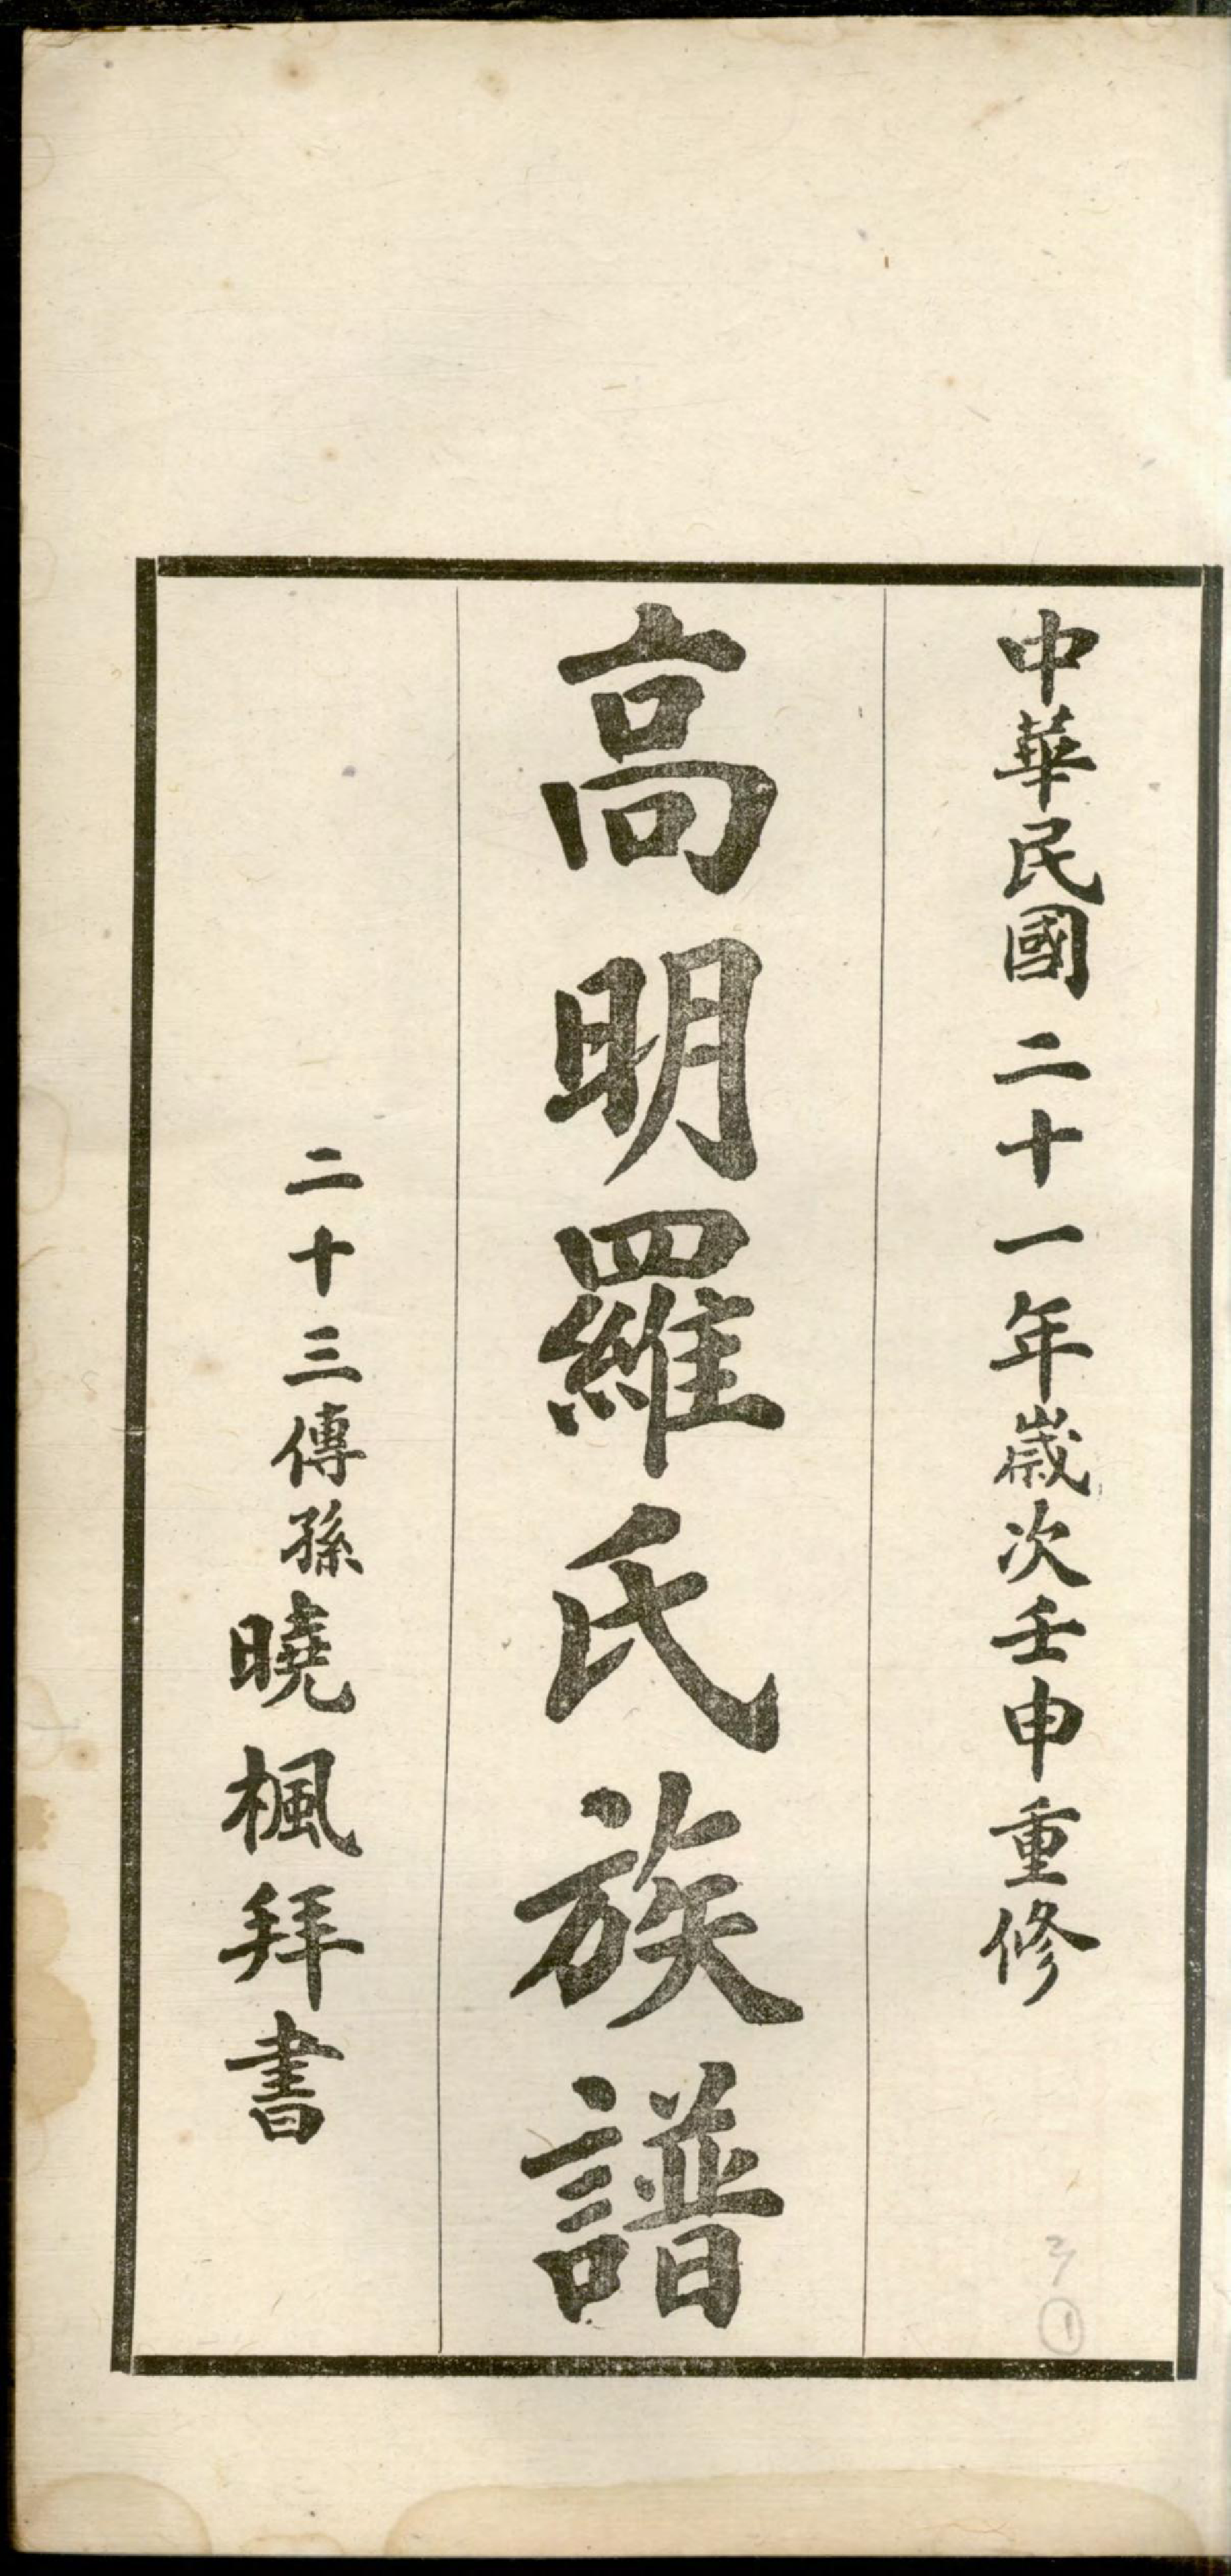 中華民國二十一年歲次壬申重修
高明羅氏族譜
二十三傳孫曉楓拜書
①